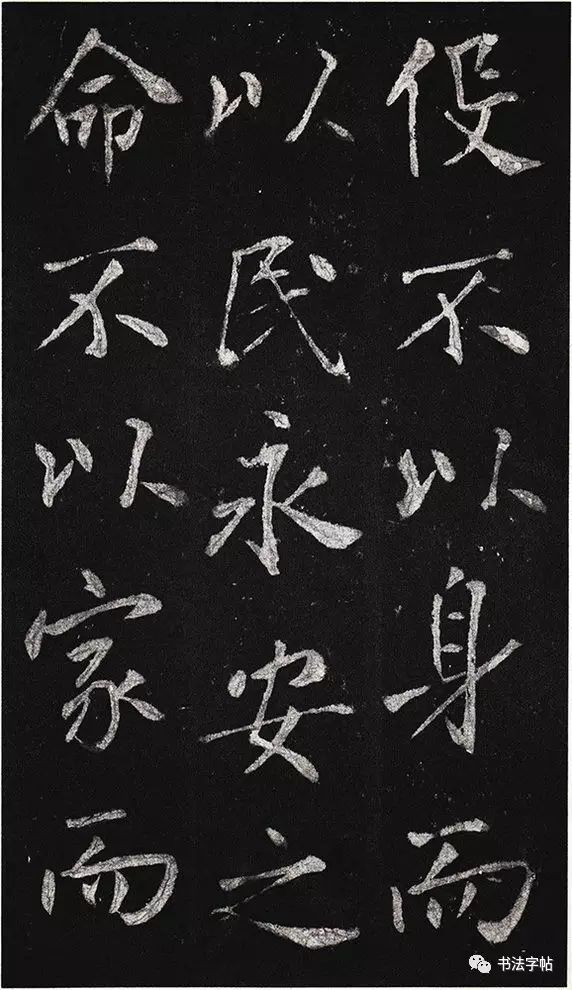 伇不以身而
以民永安之
命不以家而
书法字帖